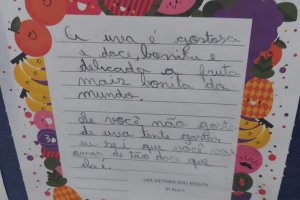 A uva é gostosa
e doce, bonita e
delicada a fruta
mais bonita do
mundo.
Se você não gosta
de uva tente gostar
eu sei que você vai
amar de tão doce que
LISA VICTORIA DIAS MOUTA
3º Ano E